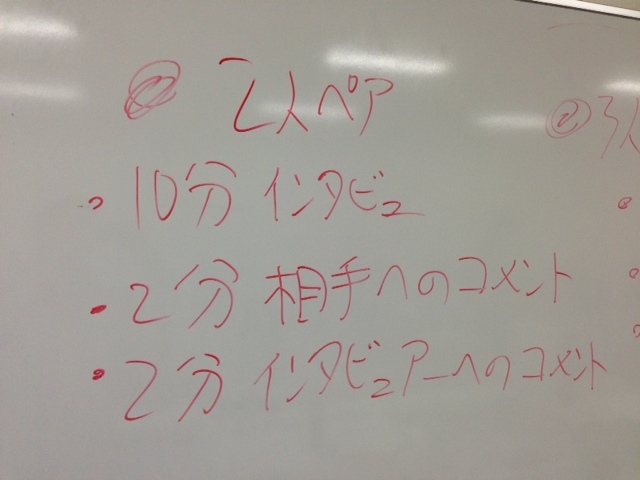 2人ペア
・10分 インタビュ
・2分 相手へのコメント
・2分 インタビュアーへのコメント
② 3人